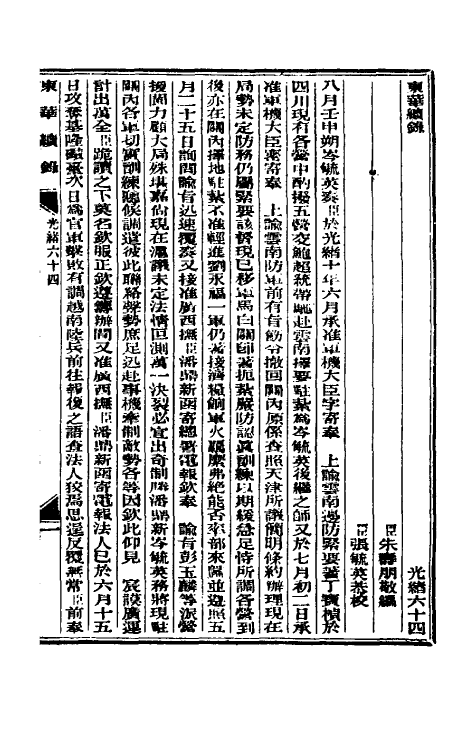 東華續錄
光緒六十四
臣朱壽朋敬編
臣張毓英恭校
八月壬申朔岑毓英奏臣於光緒十年六月承准軍機大臣字寄奉　上諭雲南邊防緊要著丁寶楨於
四川現有各營中酌撥五營交鮑超統帶馳赴雲南擇要駐紮為岑毓英後繼之師又於七月初二日承
准軍機大臣密寄奉　上諭雲南防軍前有旨飭分撤回關內原係查照天津所議簡明條約辦理現在
局勢未定防務仍屬緊要該督現已移軍馬白關即著扼紮嚴防認真訓練以期緩急足恃所調各營到
後亦在關內擇地駐紮不准輕進劉永福一軍仍著接濟糧餉軍火羈縻弗絕能否來部來屬並遵照五
月二十五日詢問諭旨迅速覆奏又接准廣西撫臣潘鼎新函寄總署電報欽奉　諭旨彭玉麟等派營
援閩力顧大局殊堪嘉尚現在滬議未定法情叵測萬一決裂必宜出奇制勝潘鼎新岑毓英務將現駐
關內各軍切實訓練聽候調遣彼此聯絡聲勢庶足迅赴事機牽制敵勢各等因欽此仰見　宸謨廣運
計出萬全臣跪讀之下莫名欽服正欽遵籌辦間又准廣西撫臣潘鼎新函寄電報法人已於六月十五
日攻奪基隆礮臺次日為官軍擊敗有調越南陸兵前往報復之語查法人狡焉思逞反覆無常臣前奉
東華續錄
光緒六十四